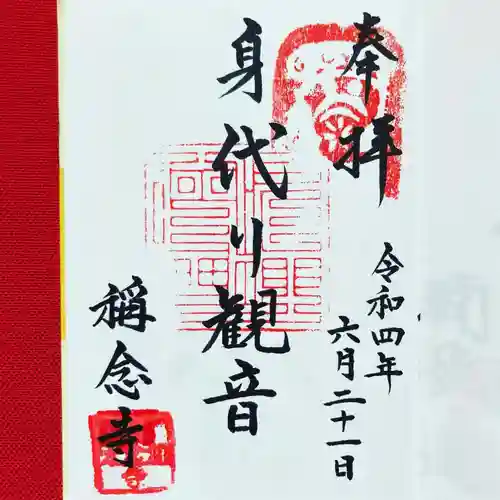 奉拝
令和四年
六月二十一日
身代り観音
稱念寺